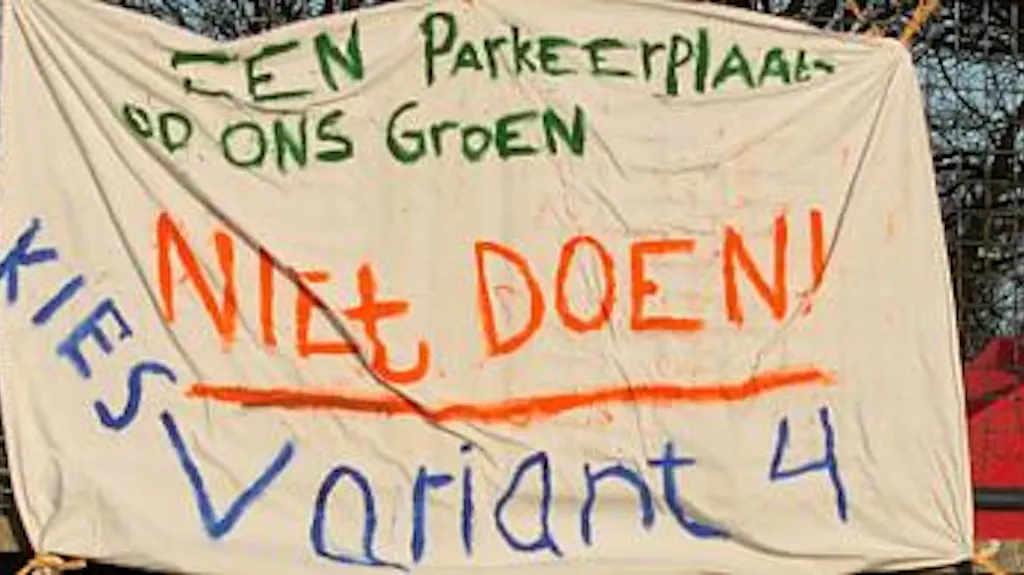 EEN ParkEErPlAAts
OP ONS GroEN
NIEt DOEN!
KIES
Variant 4